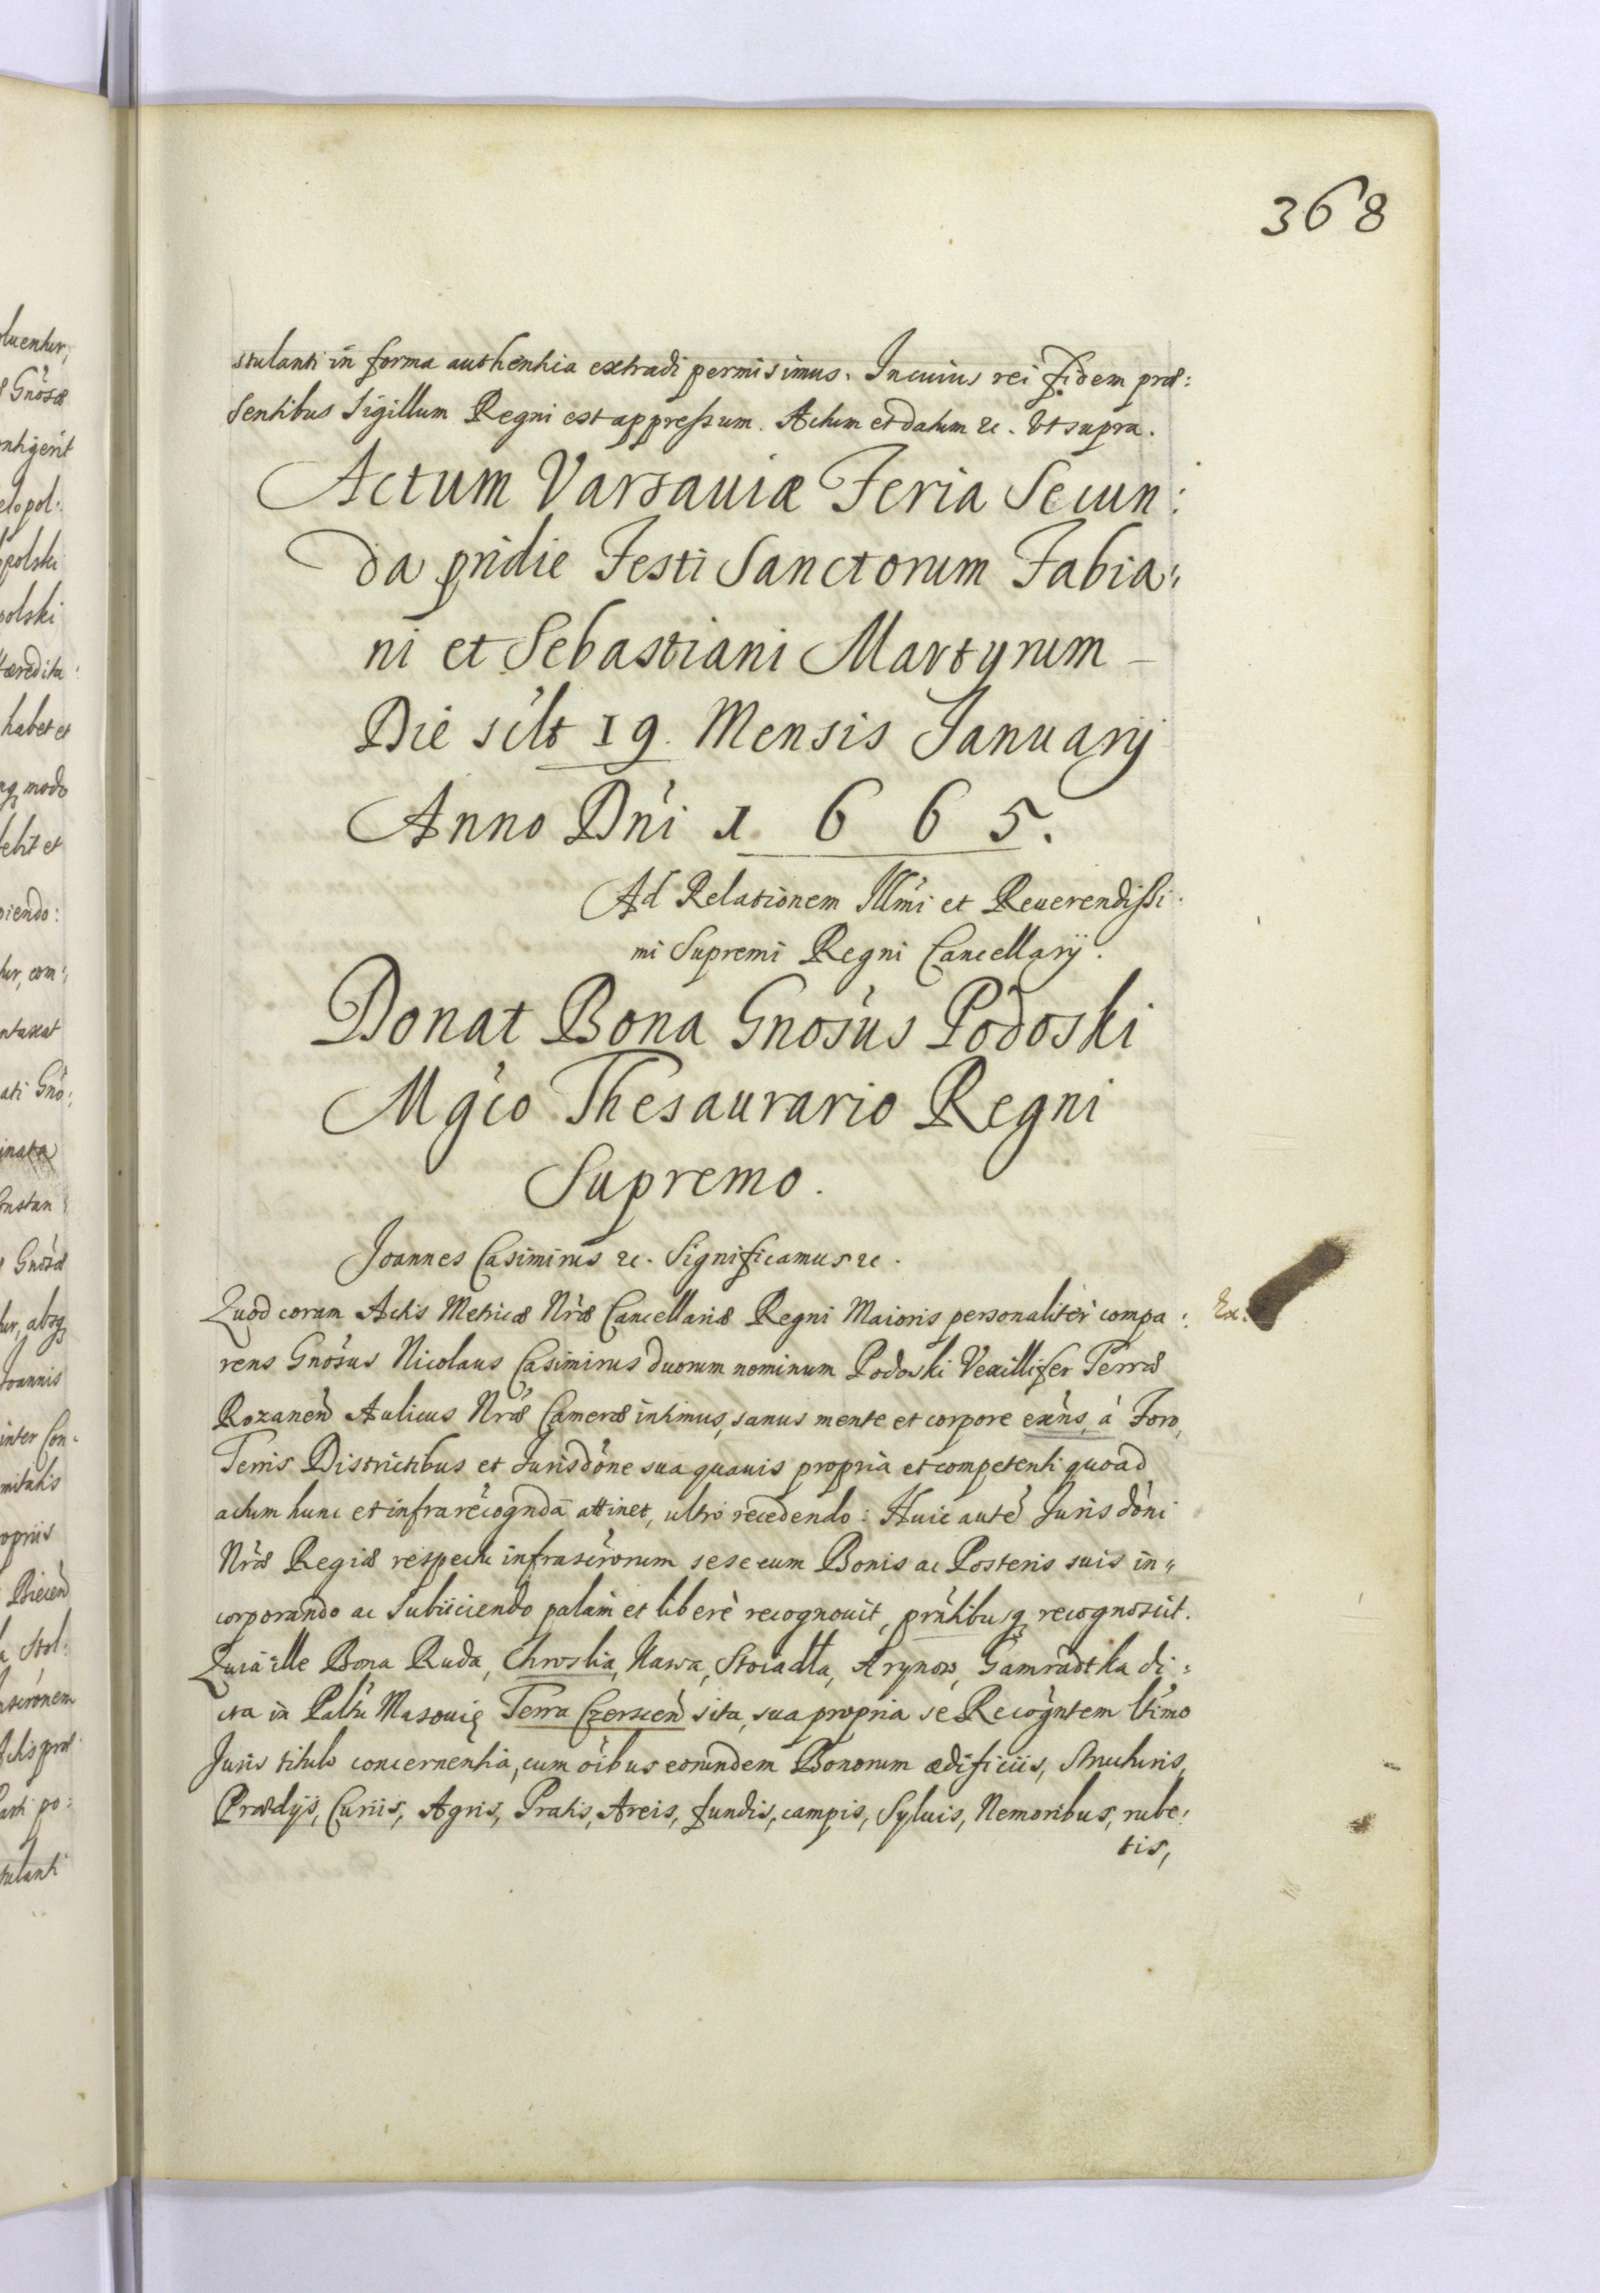 368
stulanti in forma authentica extradi permisimus. In cuius rei fidem præ:
sentibus Sigillum Regni est appressum. Actum et datum &c. Vt supra.
Actum Varsauiæ Feria Secun:
da pridie Festi Sanctorum Fabia:
ni et Sebastiani Martyrum
Die silt 19. Mensis Januarij
Anno Dni 1 6 6 5.
Ad Relationem Illmi et Reuerendissi
mi Supremi Regni Cancellarij.
Donat Bona Gnosus Podoski
Mgco Thesaurario Regni
Supremo.
Joannes Casimirus &c. Significamus &c.
Quod coram Actis Metricæ Nræ Cancellariæ Regni Maioris personaliter compa:
rens Gnosus Nicolaus Casimirus duorum nominum Podoski Vexillifer Terræ
Rozanen Aulicus Nræ Cameræ intimus, sanus mente et corpore exns, à Foro,
Terris Districtibus et Jurisdone sua quauis propria et competenti quoad
actum hunc et infra recognda attinet, ultro recedendo: Huic aute Jurisdoni
Nræ Regiæ respectu infrascrorum sese cum Bonis ac Posteris suis in
corporando ac subiiciendo palam et libere recognouit, prntibusq recognoscit.
Quia ille Bona Ruda, Chroslia, Nawa, Stoiadła, Arynow, Gamradtka di:
cta in Paltu Masouię Terra Czerscen sita, sua propria se Recogntem ltimo
Juris titulo concernentia, cum oibus eorundem Bonorum ædificiis, Structuris,
Prædijs, Curiis, Agris, Pratis, Areis, fundis, campis, Syluis, Nemoribus, rube:
tis,